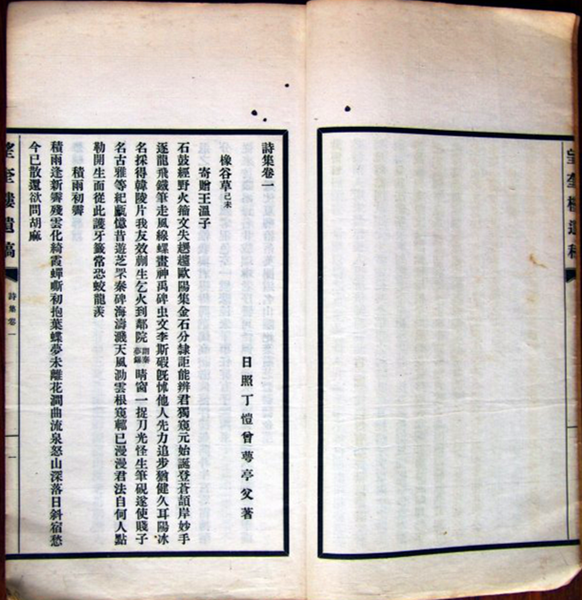 望奎樓遺稿
詩集卷一
日照丁愷曾萼亭父著
橡谷草己未
寄贈王溫子
石鼓經野火籀文失歐陽集金石分隸詎能辨君獨窺元始誕登蒼頡岸妙手
逐龍飛鐵筆走風線蝶畫神禹碑虫文李斯既他人先力追步猶健久耳陽冰
名採得韓陵片我友效蒯生乞火到鄰院晴窗一捉刀光怪生筆硯遂使賤子
名古雅等紀甗憶昔遊芝罘秦碑海濤濺天風泐雲根窺已漫漫君法自何人點
勒開生面從此護牙籤常恐蛟龍羨
積雨初霽
積雨逢新霽殘雲化綺霞蟬嘶初抱葉蝶夢未離花澗曲流泉怒山深落日斜宿愁
今已散還欲問胡麻
望奎樓遺稿
詩集卷一
一